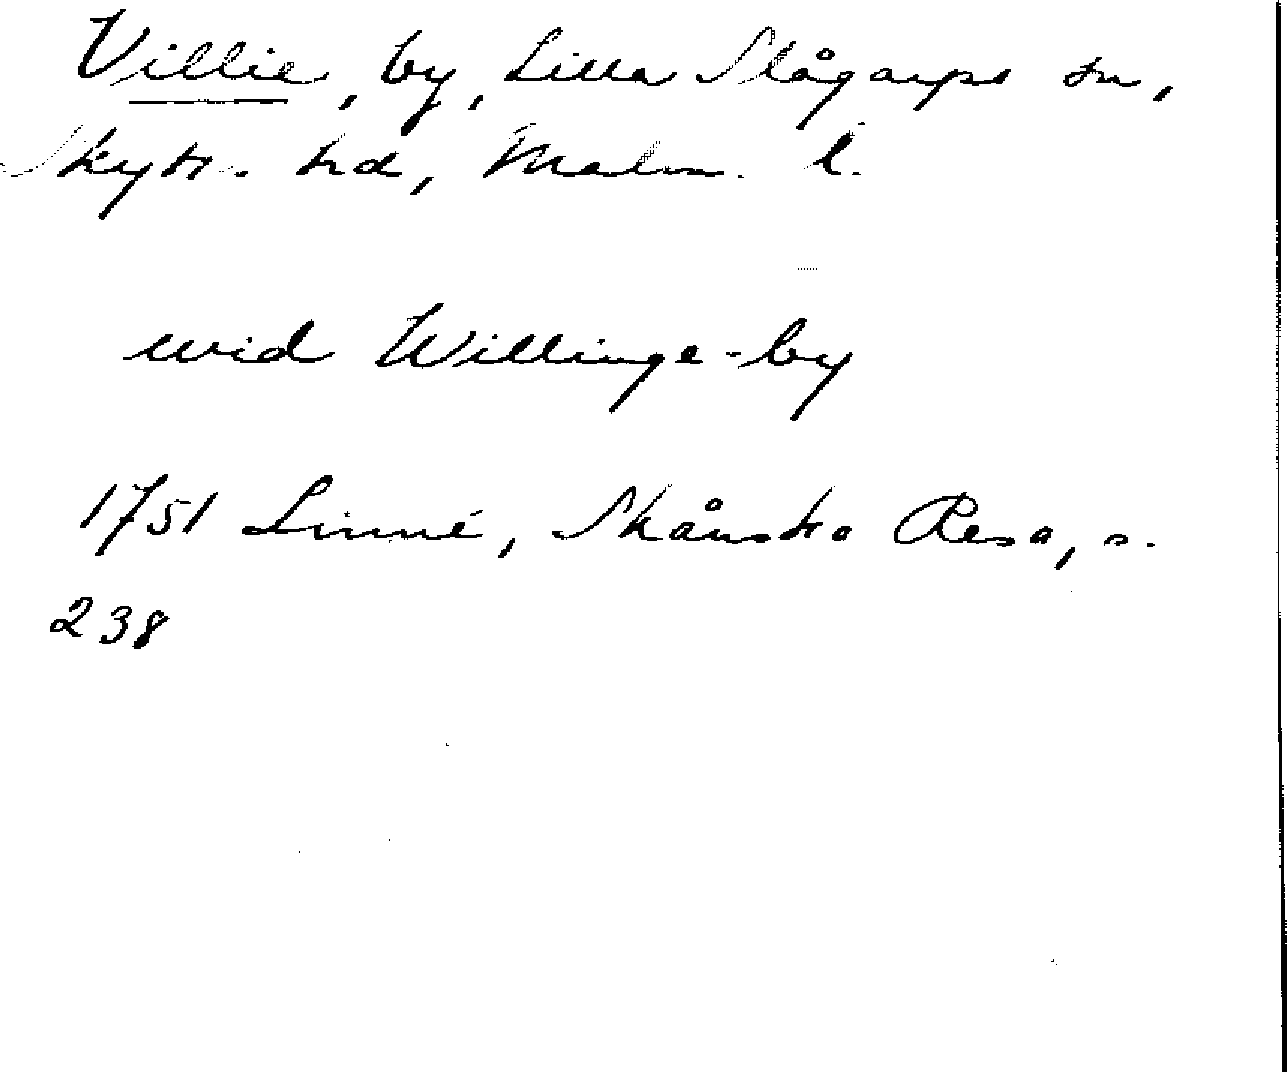 Villie, by, Lilla Slågarps sn,
Skytts hd, Malm. l.
wid Willinge-by
1751 Linné, Skånska Resa, s.
238